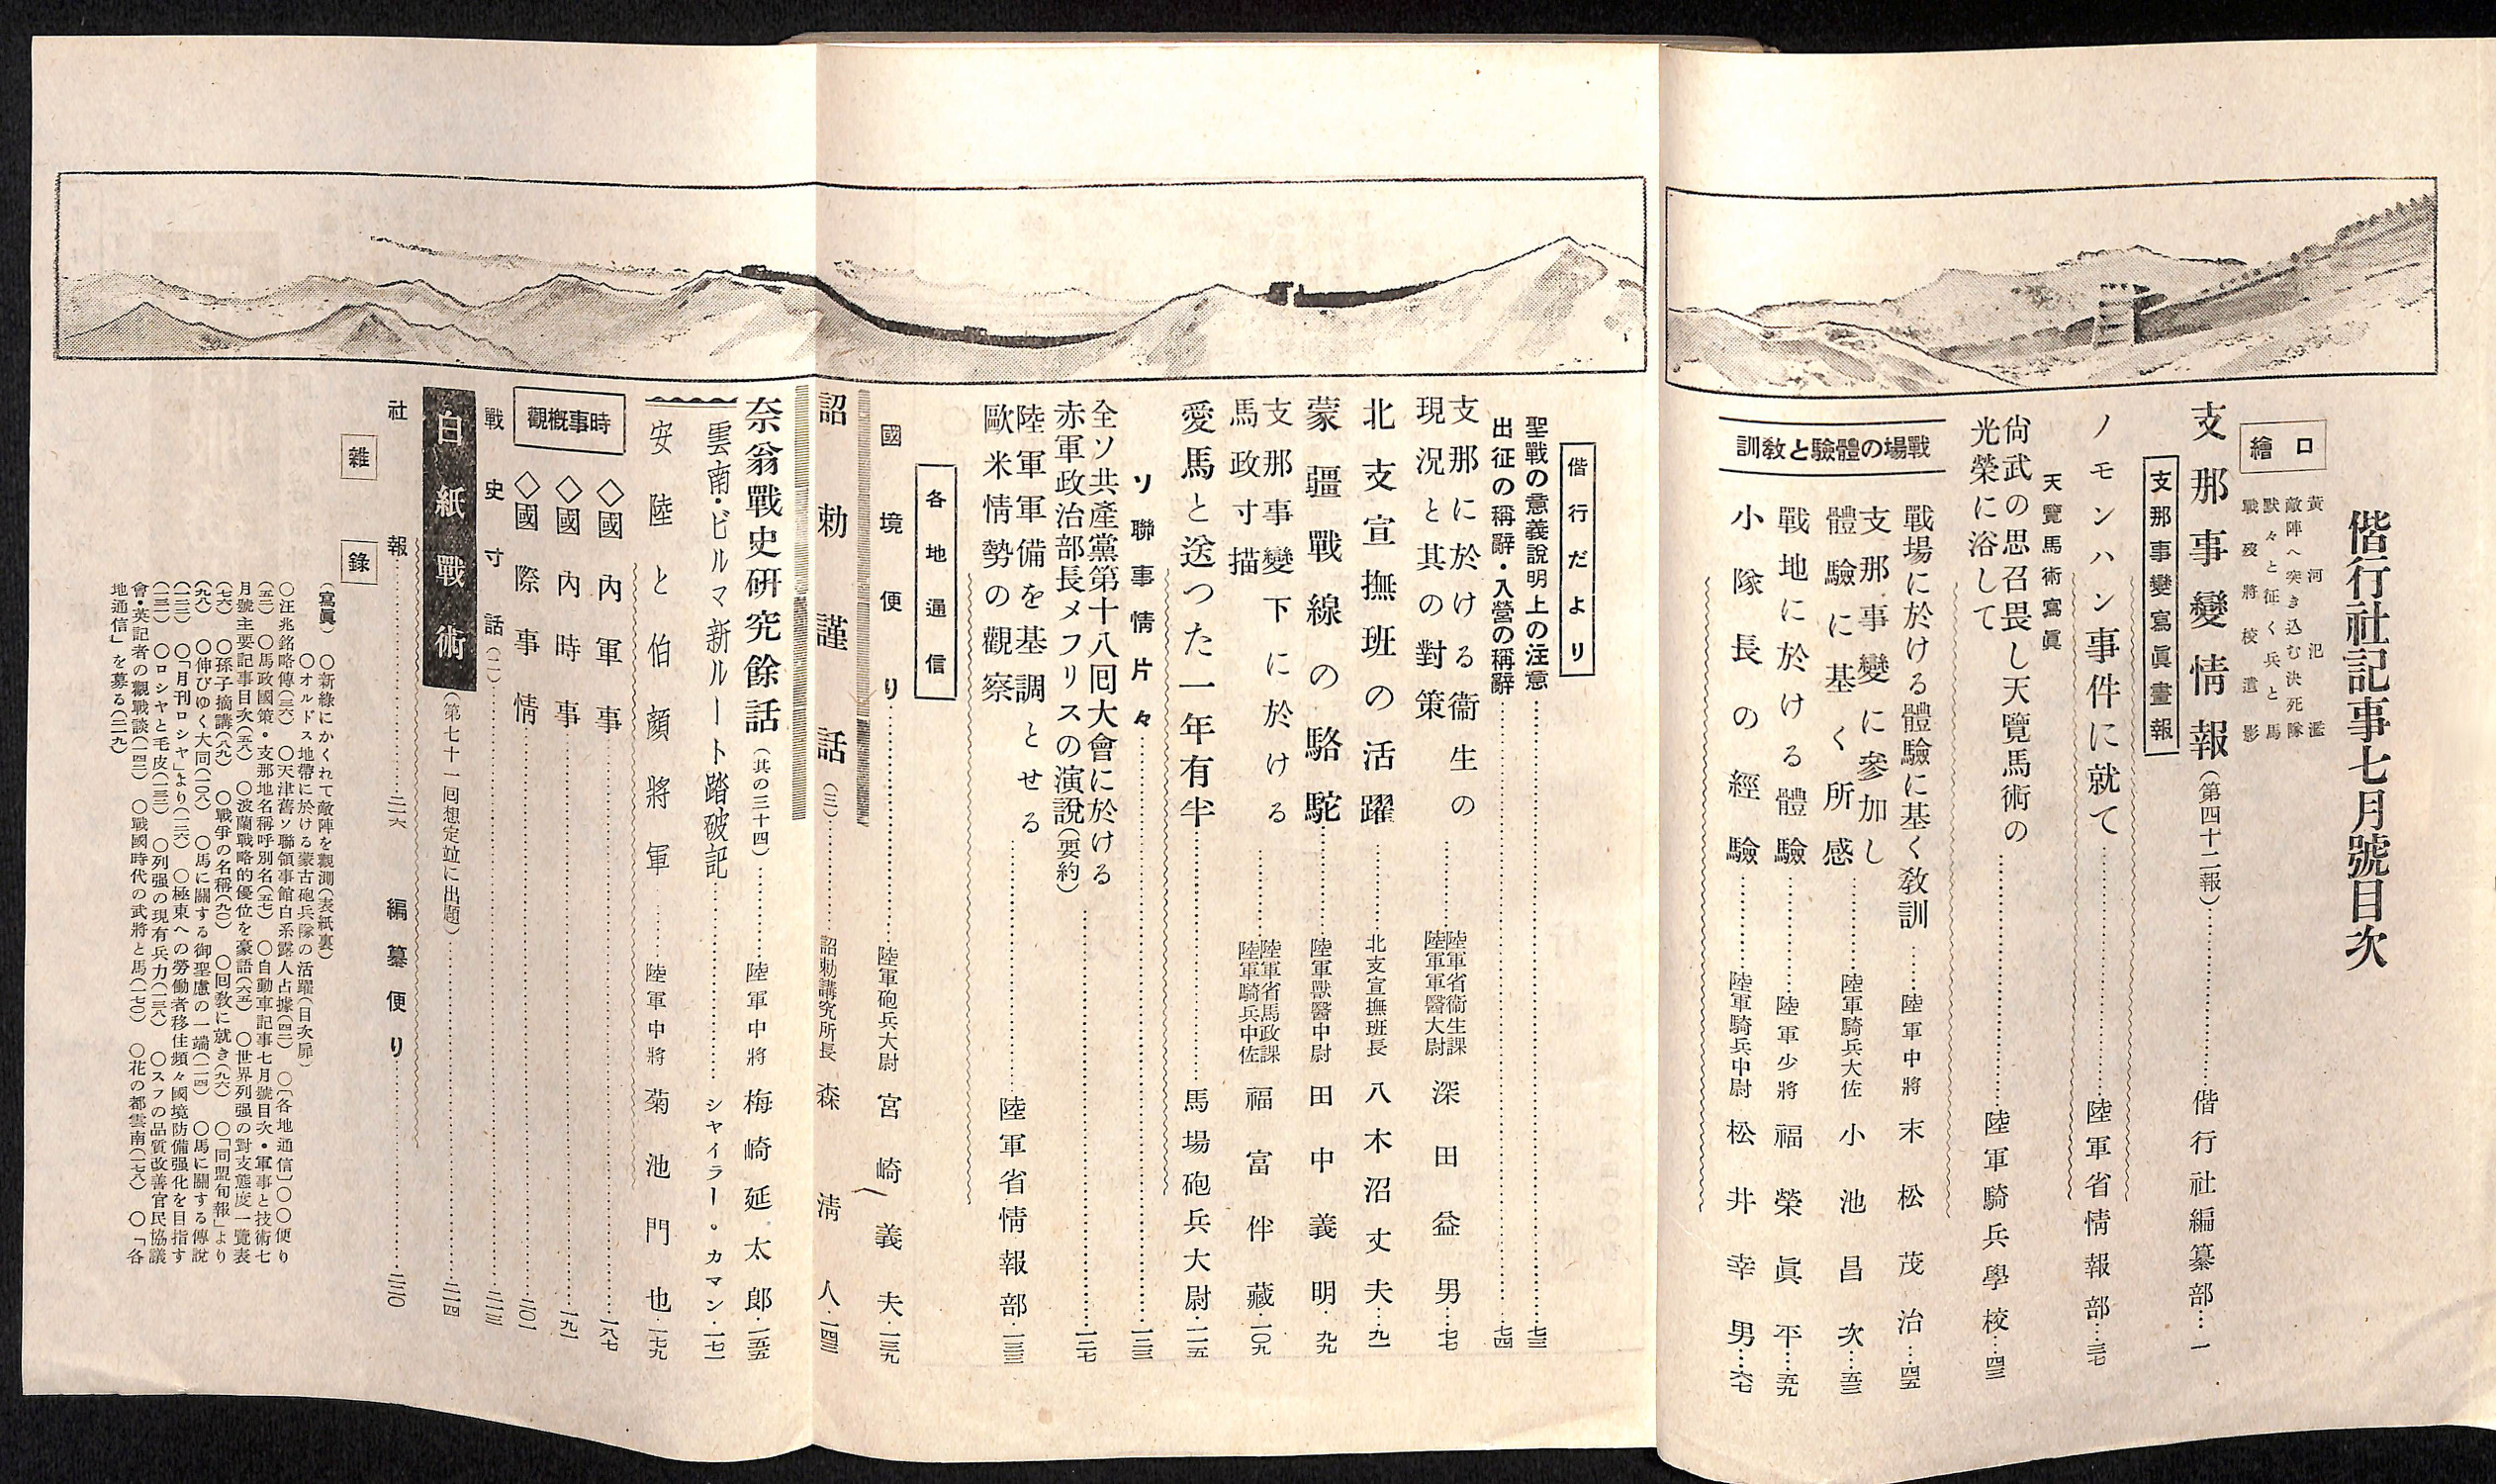 偕行社記事七月號目次
口繪
黃河氾濫
敵陣へ突き込む決死隊
默々と征く兵と馬
戰歿將校遺影
支那事變情報(第四十二報)…偕行社編纂部…一
支那事變寫眞畫報
ノモンハン事件に就て…陸軍省情報部…三七
天覽馬術寫眞
尙武の思召畏し天覽馬術の
光榮に浴して…陸軍騎兵學校…四三
戰場の體驗と敎訓
戰場に於ける體驗に基く敎訓…陸軍中將 末松茂治…四五
支那事變に參加し
體驗に基く所感…陸軍騎兵大佐 小池昌次…五三
戰地に於ける體驗…陸軍少將 福榮眞平…五九
小隊長の經驗…陸軍騎兵中尉 松井幸男…六七
偕行だより
聖戰の意義說明上の注意…七三
出征の稱辭・入營の稱辭…七四
支那に於ける衞生の
現況と其の對策…陸軍省衞生課 陸軍軍醫大尉 深田益男…七七
北支宣撫班の活躍…北支宣撫班長 八木沼丈夫…九一
蒙疆戰線の駱駝…陸軍獸醫中尉 田中義明…九九
支那事變下に於ける
馬政寸描…陸軍省馬政課 陸軍騎兵中佐 福富伴藏…一〇九
愛馬と送つた一年有半…馬場砲兵大尉…一一五
ソ聯事情片々…一二三
全ソ共產黨第十八回大會に於ける
赤軍政治部長メフリスの演說(要約)…一二七
陸軍軍備を基調とせる
歐米情勢の觀察…陸軍省情報部…一三三
各地通信
國境便り…陸軍砲兵大尉 宮崎義夫…一三九
詔勅謹話(三)…詔勅講究所長 森淸人…一四三
奈翁戰史硏究餘話(其の三十四)…陸軍中將 梅崎延太郎…一五五
雲南・ビルマ新ルート踏破記…シヤイラー・カマン…一七一
安陸と伯顏將軍…陸軍中將 菊池門也…一七九
時事槪觀
◇國內軍事…一八七
◇國內時事…一九一
◇國際事情…二〇一
戰史寸話(二)…二一三
白紙戰術(第七十一回想定竝に出題)…二一四
社報…二一六
編纂便り…二二〇
雜錄
(寫眞) 〇新綠にかくれて敵陣を觀測(表紙裏)
〇オルドス地帶に於ける蒙古砲兵隊の活躍(目次扉)
〇汪兆銘略傳(三六) 〇天津舊ソ聯領事館白系露人占據(四二) 〇〔各地通信〕〇〇便り
(五二) 〇馬政國策・支那地名稱呼別名(五七) 〇自動車記事七月號目次・軍事と技術七
月號主要記事目次(五八) 〇波蘭戰略的優位を豪語(六五) 〇世界列强の對支態度一覽表
(七六) 〇孫子摘講(八九) 〇戰爭の名稱(九〇) 〇回敎に就き(九六) 〇「同盟旬報」より
(九八) 〇伸びゆく大同(一〇八) 〇馬に關する御聖慮の一端(一一四) 〇馬に關する傳說
(一二二) 〇「月刊ロシヤ」より(一二六) 〇極東への勞働者移住頻々國境防備强化を目指す
(一三一) 〇ロシヤと毛皮(一三二) 〇列强の現有兵力(一三八) 〇スフの品質改善官民協議
會・英記者の觀戰談(一四二) 〇戰國時代の武將と馬(一七〇) 〇花の都雲南(一七八) 〇「各
地通信」を募る(二一九)